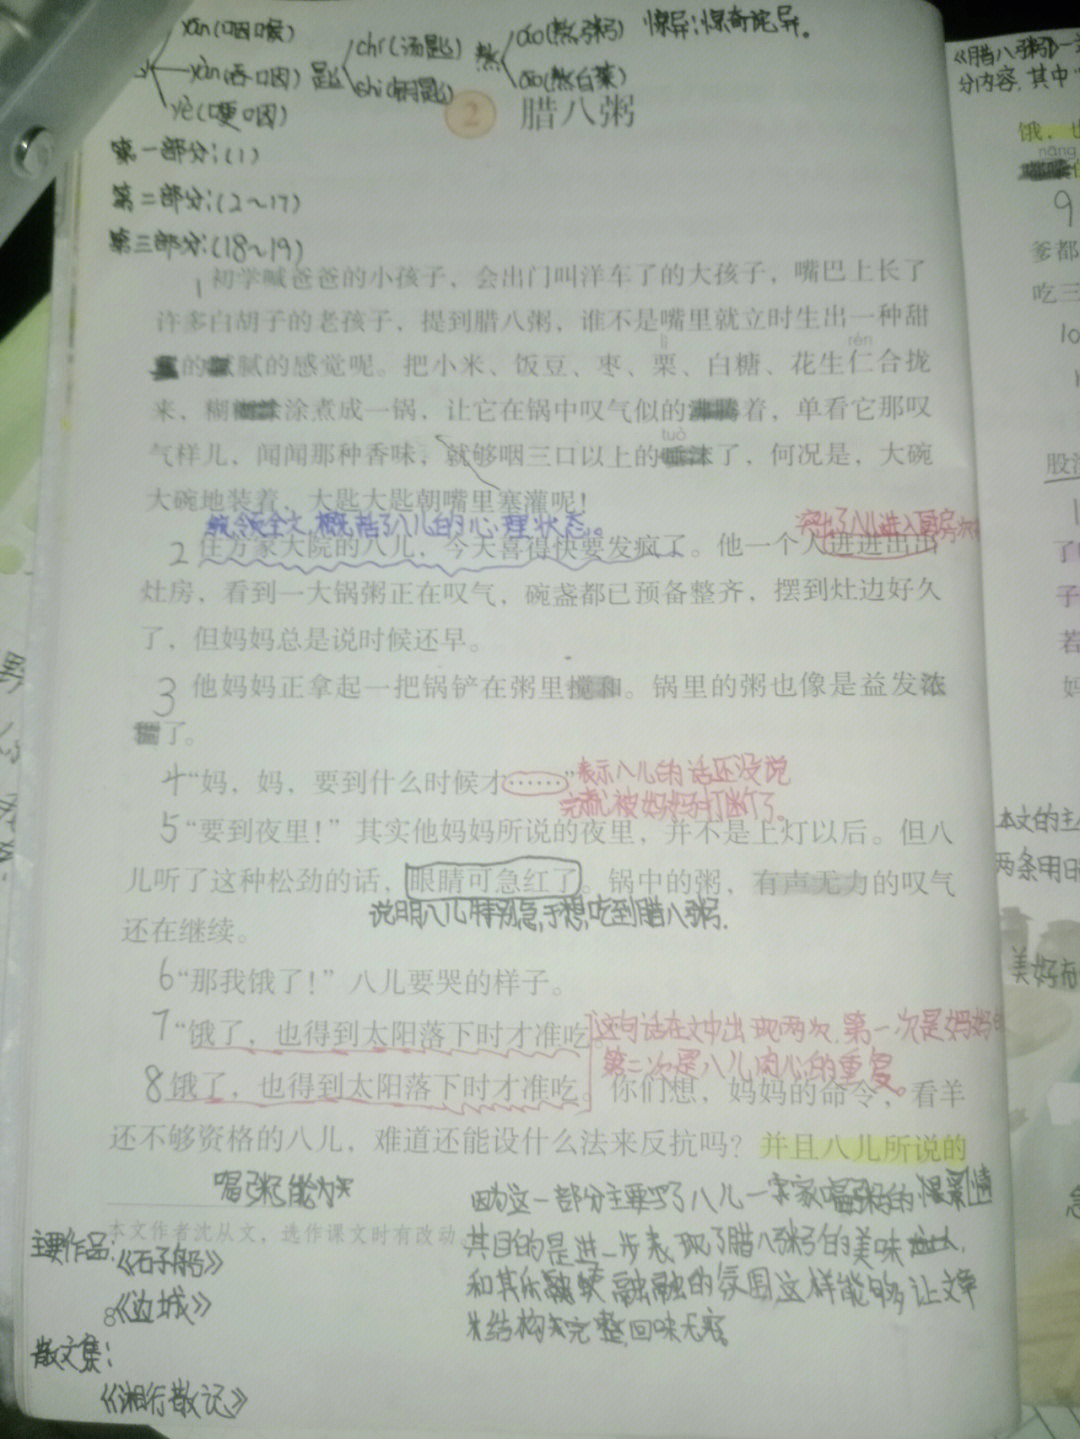 yān(咽喉)
yàn(吞咽)
yè(哽咽)
匙
chí(汤匙)
shi(钥匙)
熬
áo(熬粥)
āo(熬白菜)
惊异:惊奇诧异。
2 腊八粥
第一部分:(1)
第二部分:(2~17)
第三部分:(18~19)
1 初学喊爸爸的小孩子，会出门叫洋车了的大孩子，嘴巴上长了
许多白胡子的老孩子，提到腊八粥，谁不是嘴里就立时生出一种甜
lì rén
的腻腻的感觉呢。把小米、饭豆、枣、栗、白糖、花生仁合拢
来，糊涂煮成一锅，让它在锅中叹气似的沸腾着，单看它那叹
tuò
气样儿，闻闻那种香味，就够咽三口以上的唾沫了，何况是，大碗
大碗地装着，大匙大匙朝嘴里塞灌呢！
统领全文,概括了八儿的心理状态。
突出了八儿进入厨房
2 住方家大院的八儿，今天喜得快要发疯了。他一个人进进出出
灶房，看到一大锅粥正在叹气，碗盏都已预备整齐，摆到灶边好久
了，但妈妈总是说时候还早。
3 他妈妈正拿起一把锅铲在粥里搅和。锅里的粥也像是益发浓
稠了。
4 “妈，妈，要到什么时候才……”
表示八儿的话还没说
完就被妈妈打断了。
5 “要到夜里！”其实他妈妈所说的夜里，并不是上灯以后。但八
儿听了这种松劲的话，眼睛可急红了。锅中的粥，有声无力的叹气
说明八儿特别急于想吃到腊八粥.
还在继续。
6 “那我饿了！”八儿要哭的样子。
7 “饿了，也得到太阳落下时才准吃。”
这句话在文中出现两次,第一次是妈妈
第二次是八儿内心的重复。
8 饿了，也得到太阳落下时才准吃。你们想，妈妈的命令，看羊
还不够资格的八儿，难道还能设什么法来反抗吗？并且八儿所说的
本文作者沈从文，选作课文时有改动。
主要作品:
《石子船》
《边城》
8
散文集:
《湘行散记》
因为这一部分主要写了八儿一家家喝粥的情景
其目的是进一步表现了腊八粥的美味
和其乐融融的氛围这样能够让文章
结构完整,回味无穷
《腊八粥》一
分内容,其中
饿，也
nāng
9
爹都
吃三
10
股
1
了
子
若
妈
本文的主
两条用
美好